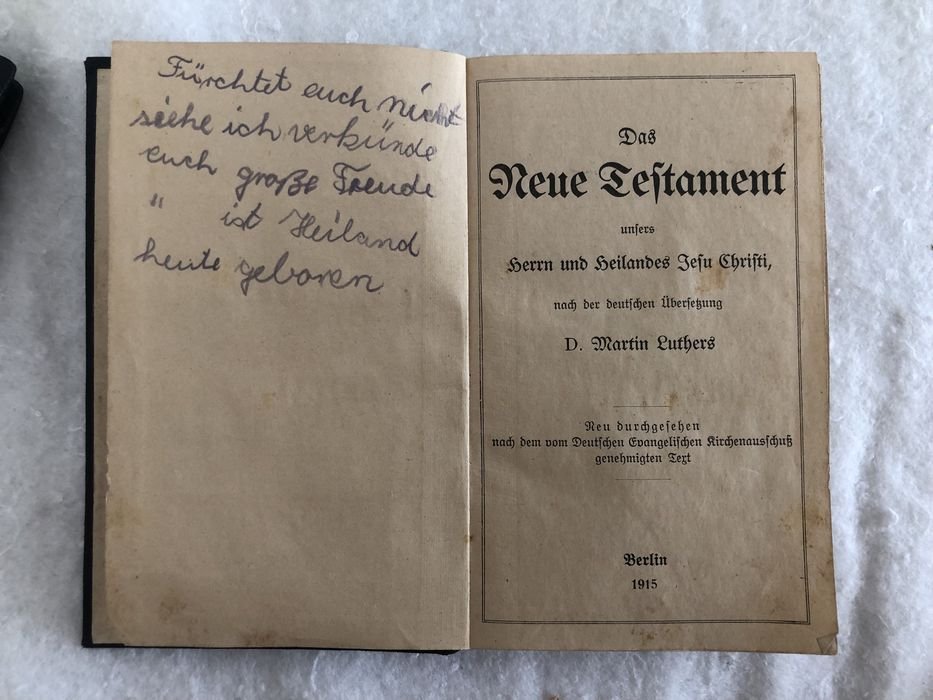 Fürchtet euch nicht
siehe ich verkünde
euch große Freude
" ist Heiland
heute geboren
Das
Neue Testament
unsers
Herrn und Heilandes Jesu Christi,
nach der deutschen Übersetzung
D. Martin Luthers
Neu durchgesehen
nach dem vom Deutschen Evangelischen Kirchenausschuß
genehmigten Text
Berlin
1915